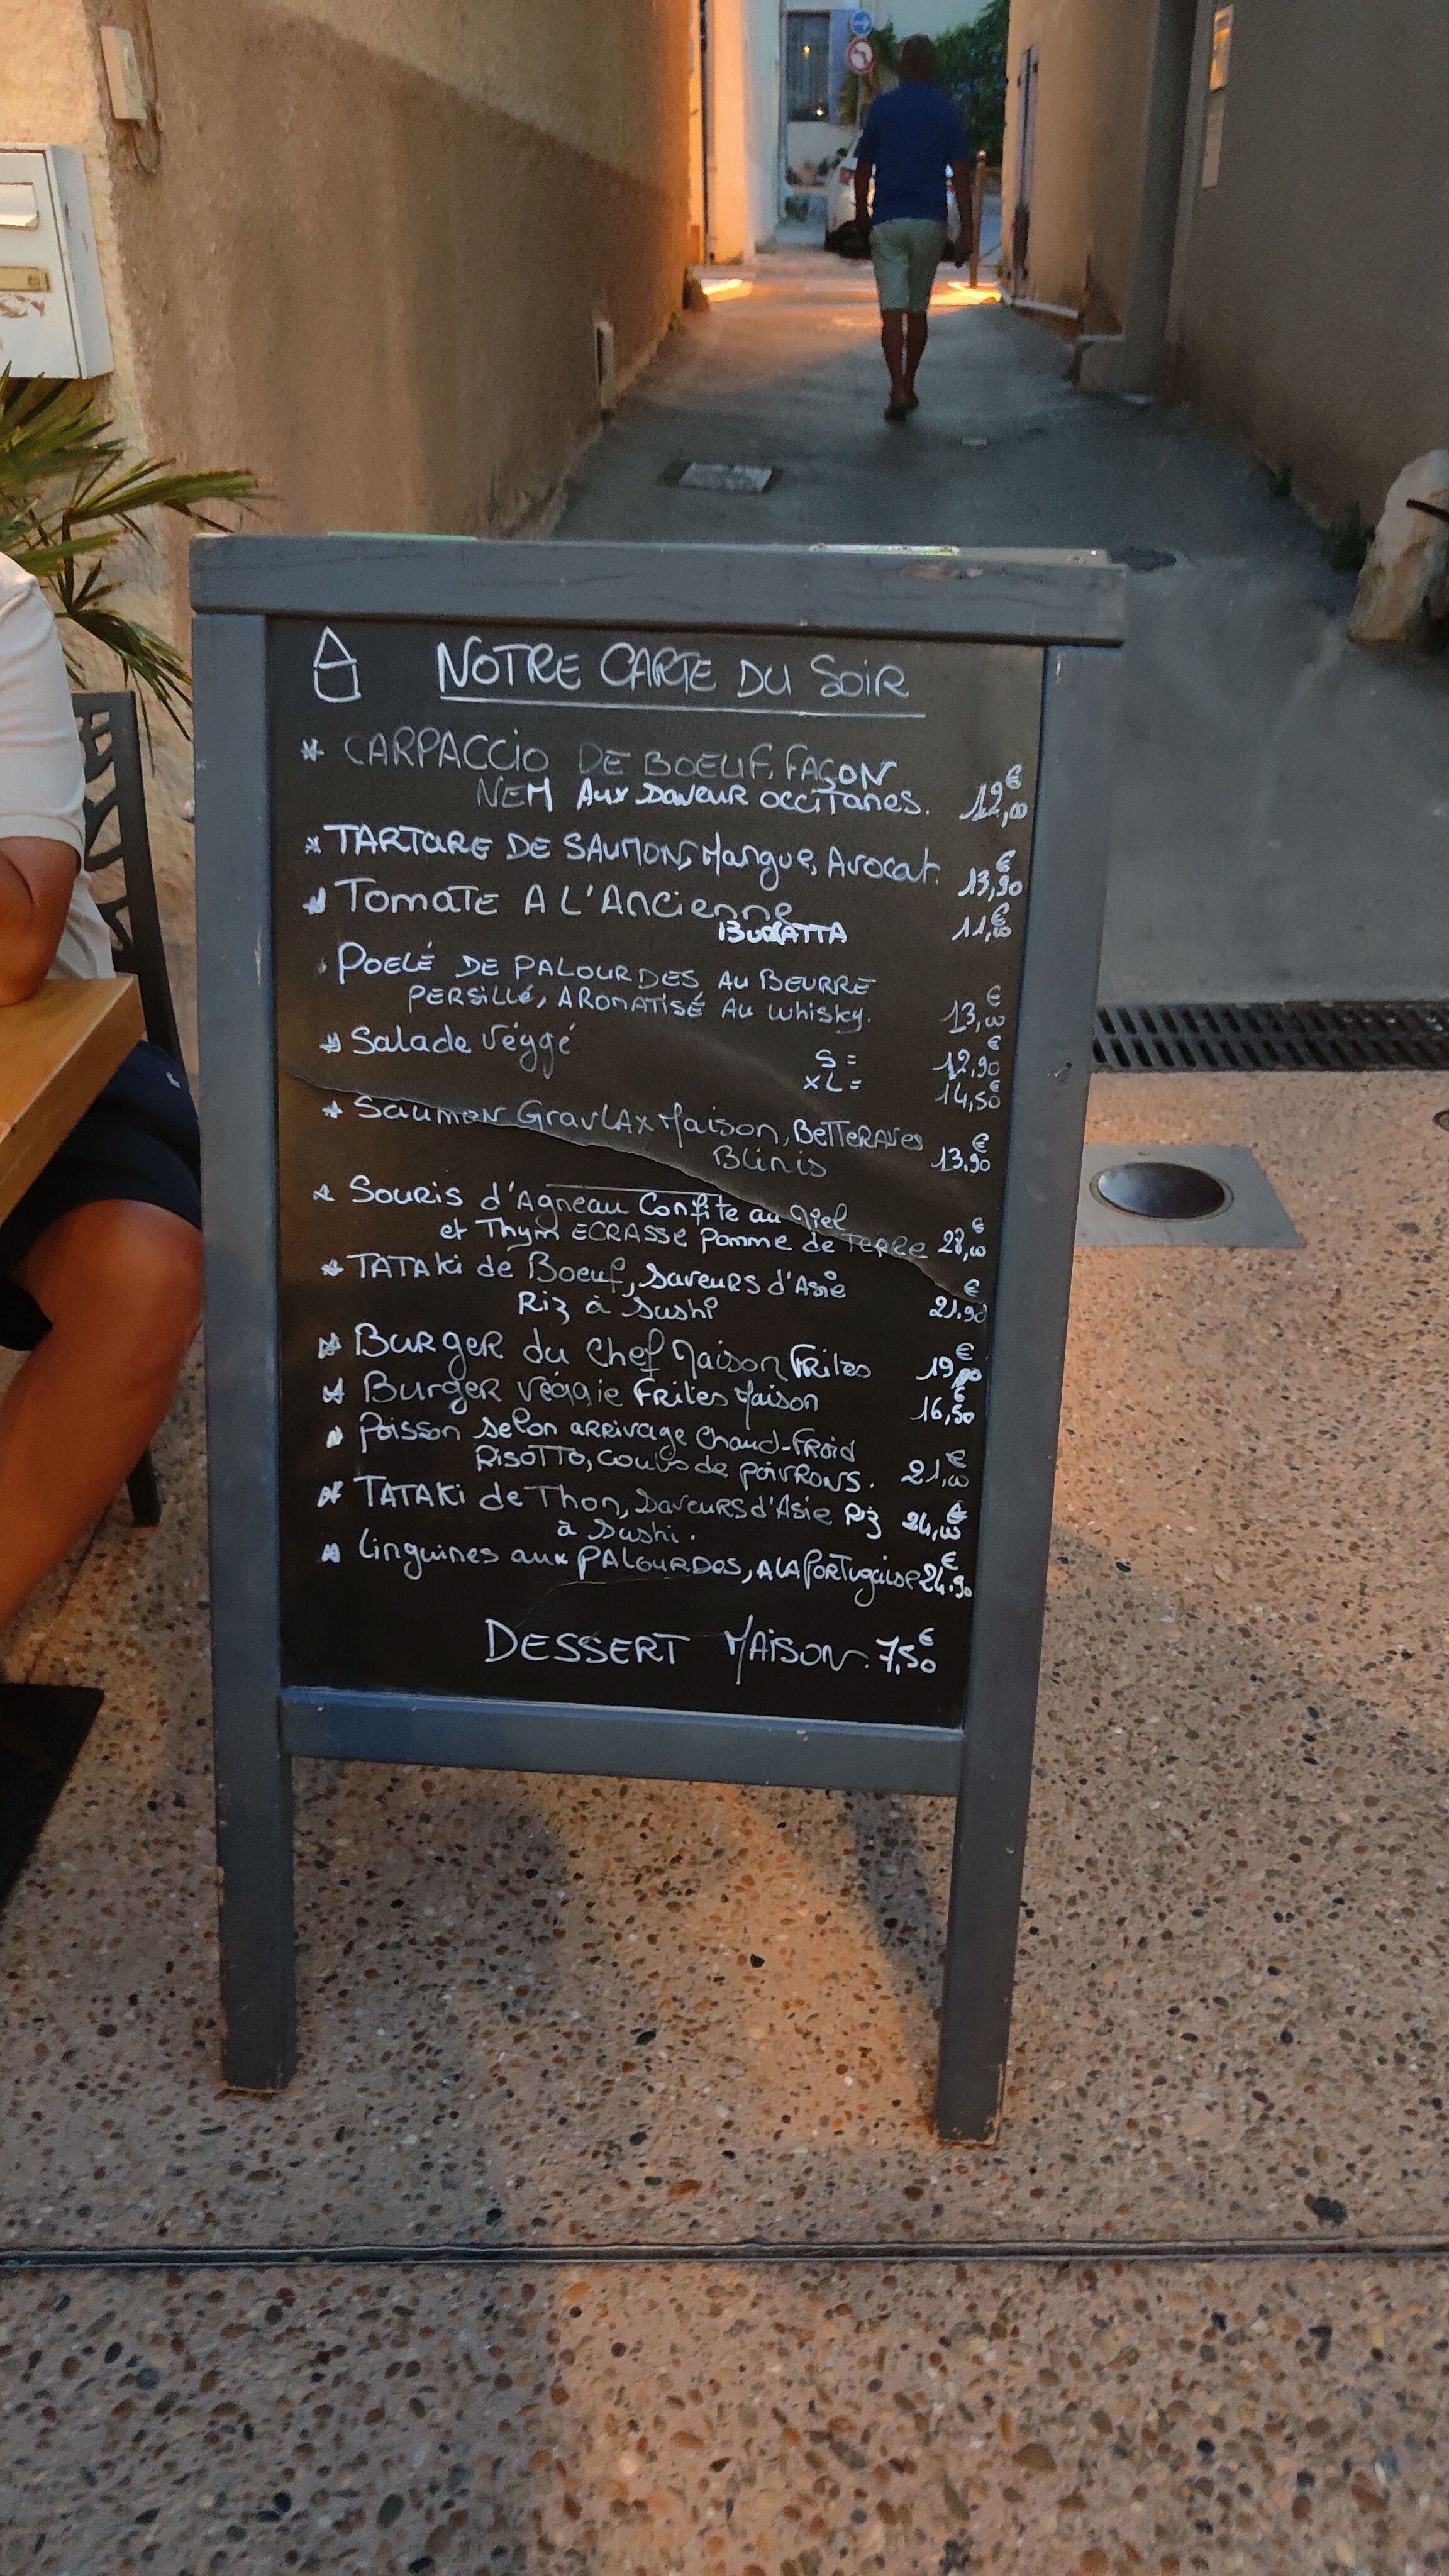 NOTRE CARTE DU SOIR
* CARPACCIO DE BOEUF, FAÇON
NEM AUX SAVEUR OCCITANES. 12,00€
* TARTARE DE SAUMON, Mangue, Avocat. 13,90€
* TOMATE A L'ANCIENNE
BURRATTA 11,00€
POELÉ DE PALOURDES AU BEURRE
PERSILLÉ, AROMATISÉ AU WHISKY. 13,00€
* Salade Véggé S = 12,90€
XL = 14,50€
* Saumon Gravlax Maison, Betteraves
Blinis 13.90€
* Souris d'Agneau Confite au Miel
et Thym ECRASSE Pomme de TERRE 28,00€
* TATAKI de Boeuf, Saveurs d'Asie
Riz à Sushi 21.90€
* BURGER du Chef Maison Frites 19,90€
* Burger Véggie Frites Maison 16,50€
* Poisson selon ARRIVAGE Chaud-Froid
RISOTTO, Coulis de POIVRONS. 21,00€
* TATAKI de Thon, Saveurs d'Asie Riz 24,00€
à Sushi.
* Linguines aux PALOURDES, A LA Portugaise 24.90€
DESSERT MAISON. 7,50€